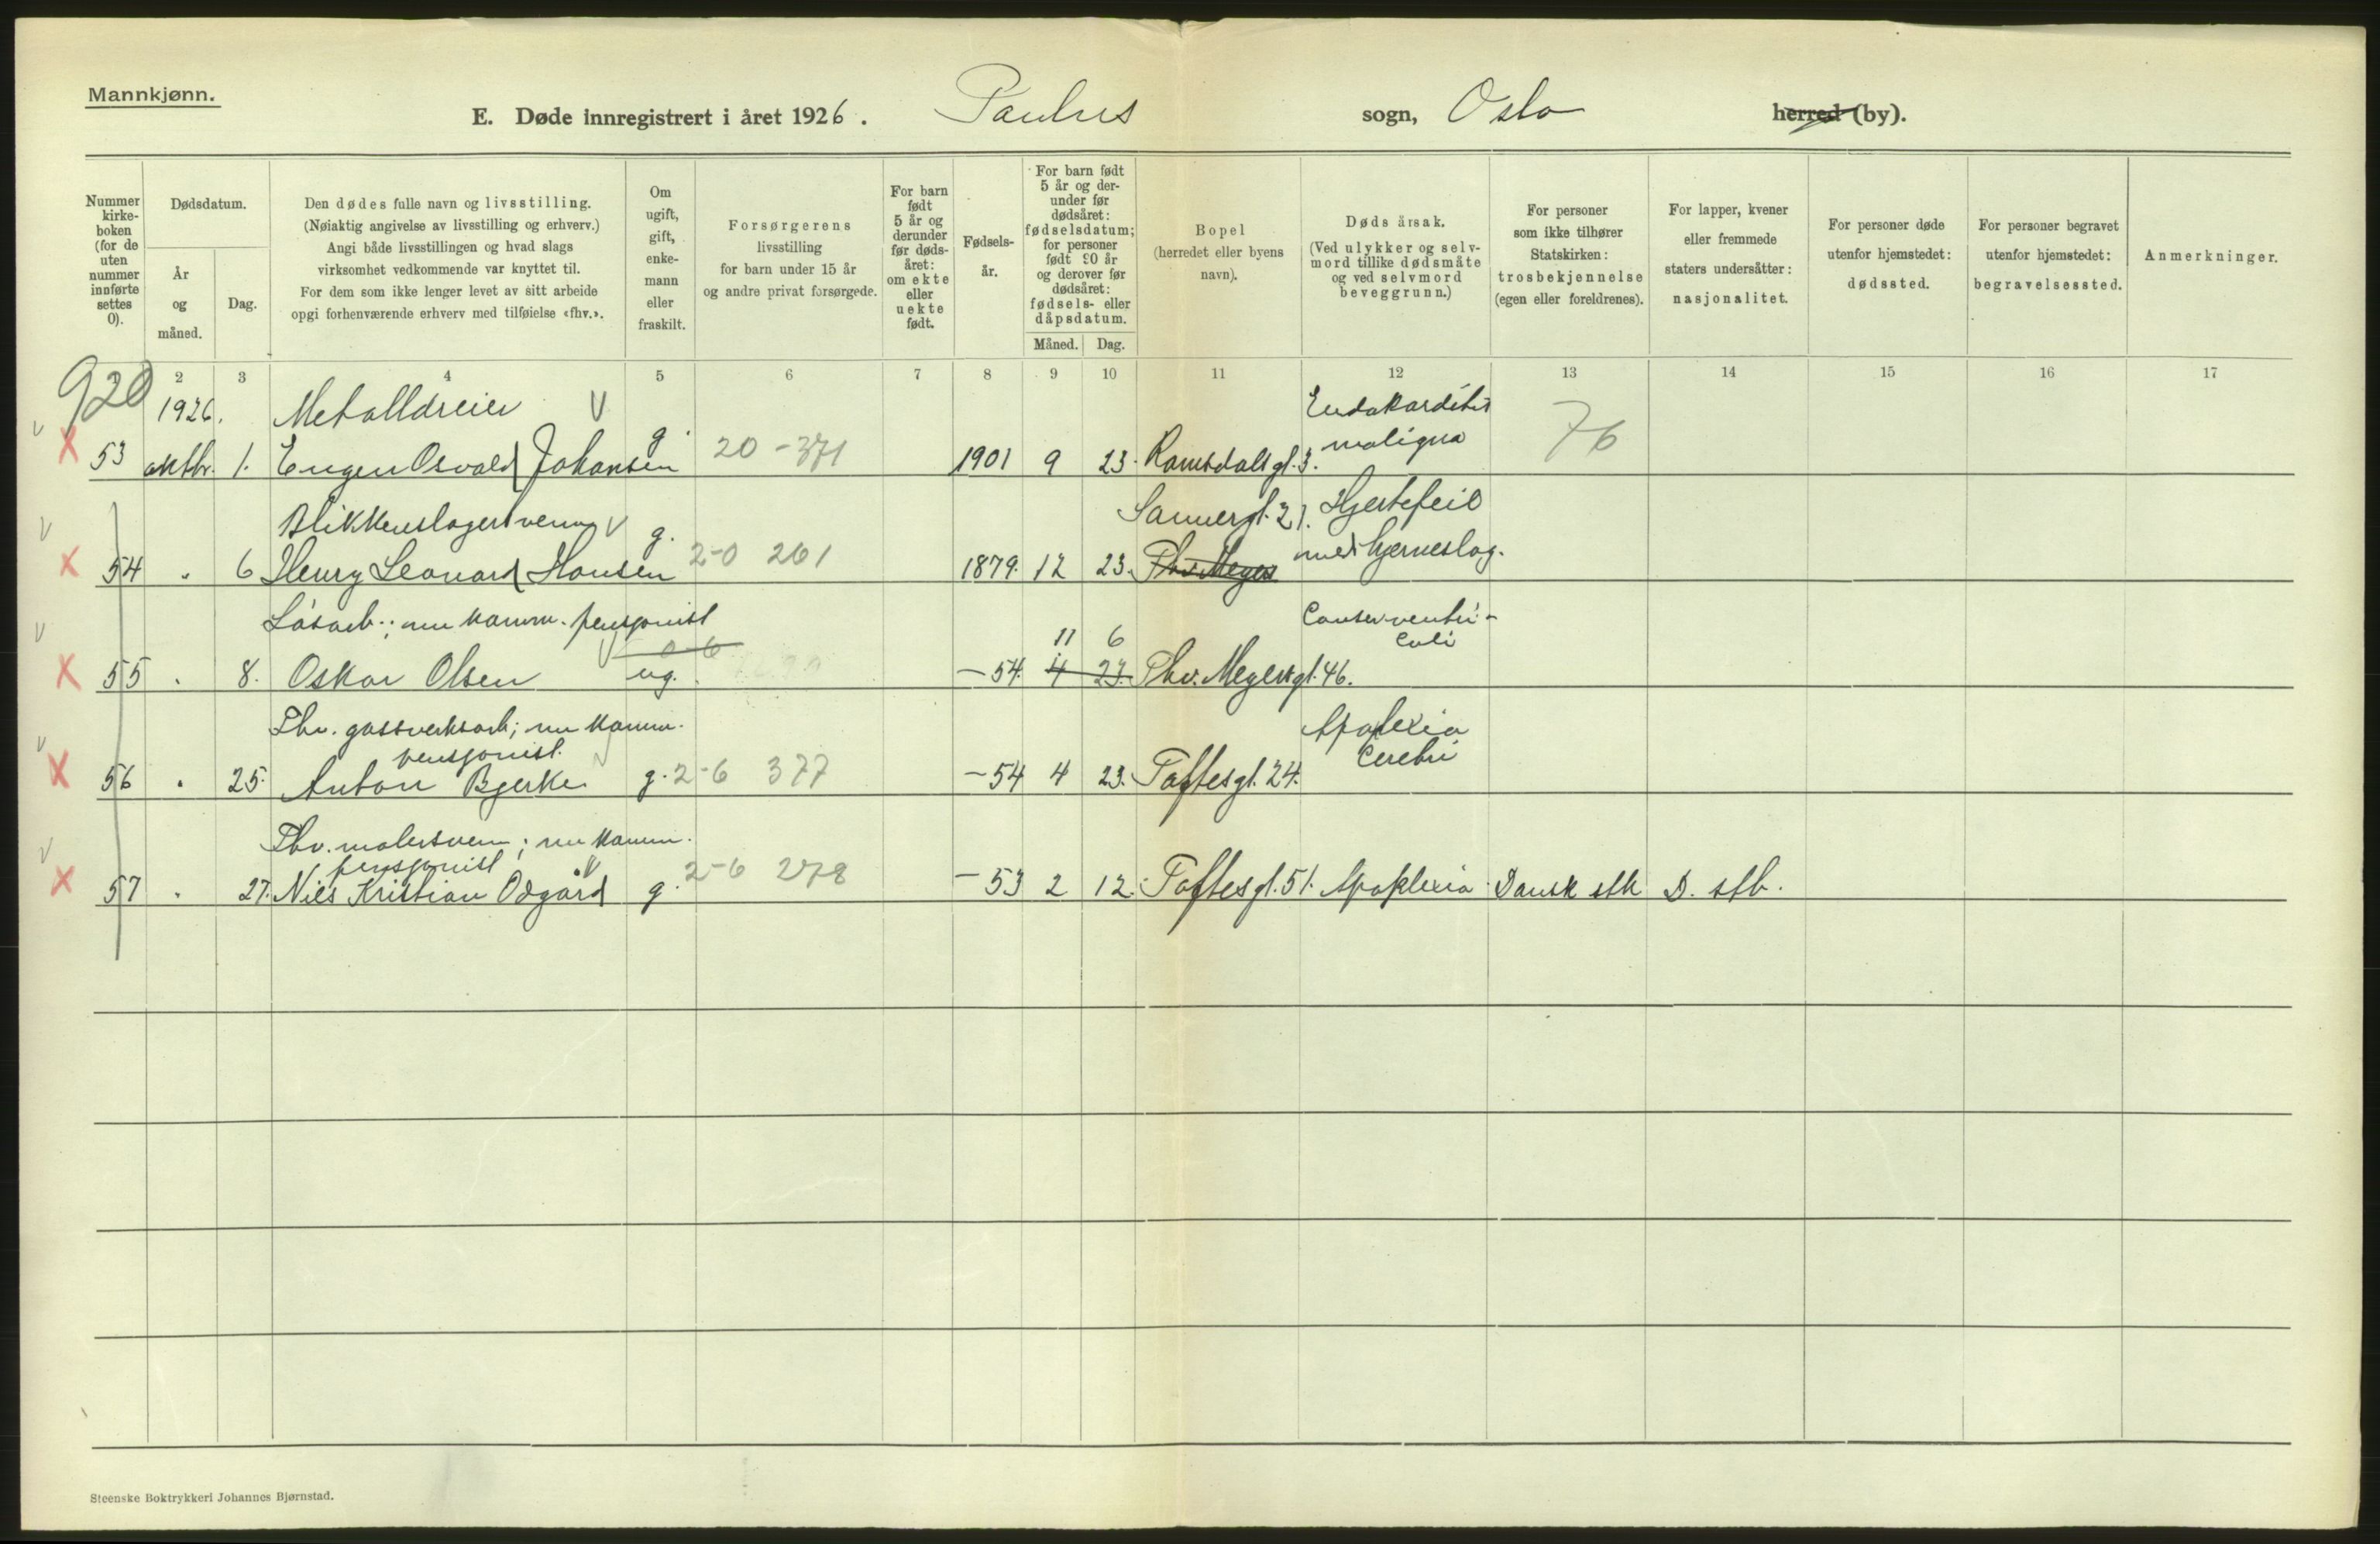 Mannkjønn.
E. Døde innregistrert i året 1926. Paulus sogn, Oslo herred (by).
Nummer kirke-boken (for de uten nummer innførte settes 0).
Dødsdatum.
År og måned.
Dag.
Den dødes fulle navn og livsstilling.
(Nøiaktig angivelse av livsstilling og erhverv.)
Angi både livsstillingen og hvad slags
virksomhet vedkommende var knyttet til.
For dem som ikke lenger levet av sitt arbeide
opgi forhenværende erhverv med tilføielse «fhv.».
Om ugift, gift, enke-mann eller fraskilt.
Forsørgerens
livsstilling
for barn under 15 år
og andre privat forsørgede.
For barn født 5 år og derunder før døds-året: om ekte eller uekte født.
Fødsels-år.
For barn født 5 år og der-under før dødsåret: fødselsdatum; for personer født 90 år og derover før dødsåret: fødsels- eller dåpsdatum.
Måned. Dag.
Bopel
(herredet eller byens
navn).
Døds årsak.
(Ved ulykker og selv-
mord tillike dødsmåte
og ved selvmord
beveggrunn.)
For personer
som ikke tilhører
Statskirken:
trosbekjennelse
(egen eller foreldrenes).
For lapper, kvener
eller fremmede
staters undersåtter:
nasjonalitet.
For personer døde
utenfor hjemstedet:
dødssted.
For personer begravet
utenfor hjemstedet:
begravelsessted.
Anmerkninger.
920 2 3 4 5 6 7 8 9 10 11 12 13 14 15 16 17
1926. Metalldreier V Endokarditis
53 oktbr. 1. Eugen Osvald Johansen g. 20-371 1901 9 23. Ramsdalsgt. 3. maligna 76
Blikkenslagersvenn V Sannergt. 21. Hjertefeil
54 " 6 Henry Leonard Hansen g. 2-0 261 1879. 12 23. Thv. Meyers med hjerneslag.
Løsarb.; nu komm. pensjonist 11 6 Cancer ventri-
coli
55 " 8. Oskar Olsen ug. -54. 4 27. Thv. Meyersgt. 46.
Fhv. gassverksarb; nu komm. Apoplexia
pensjonist. cerebri
56 " 25. Anton Bjerke g. 2-6 377 -54 4 23. Toftesgt. 24.
Fhv. malersvenn; nu komm.
pensjonist
57 " 27. Niels Kristian Odgård g. 2-6 278 -53 2 12. Toftesgt. 51. Apoplexia Dansk stk D. stb.
Steenske Boktrykkeri Johannes Bjørnstad.